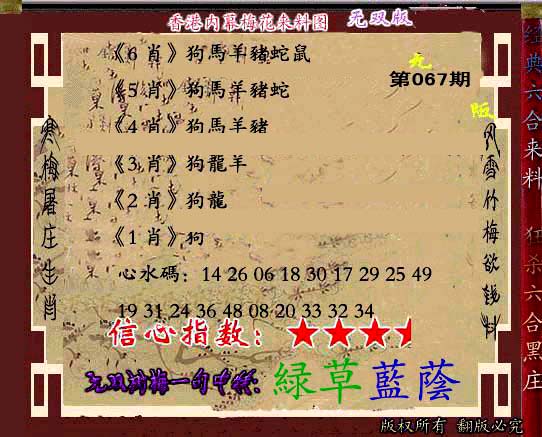 香港内幕梅花来料图 无双版
《6 肖》狗馬羊豬蛇鼠
无
第067期
《5 肖》狗馬羊豬蛇
版
《4 肖》狗馬羊豬
《3 肖》狗龍羊
《2 肖》狗龍
《1 肖》狗
心水碼：14 26 06 18 30 17 29 25 49
19 31 24 36 48 08 20 33 32 34
信心指数：
一句中特：綠草藍蔭
寒梅屠庄生肖
风雪竹梅欲钱料
经典六合来料
狂杀六合黑庄
版权所有 翻版必究